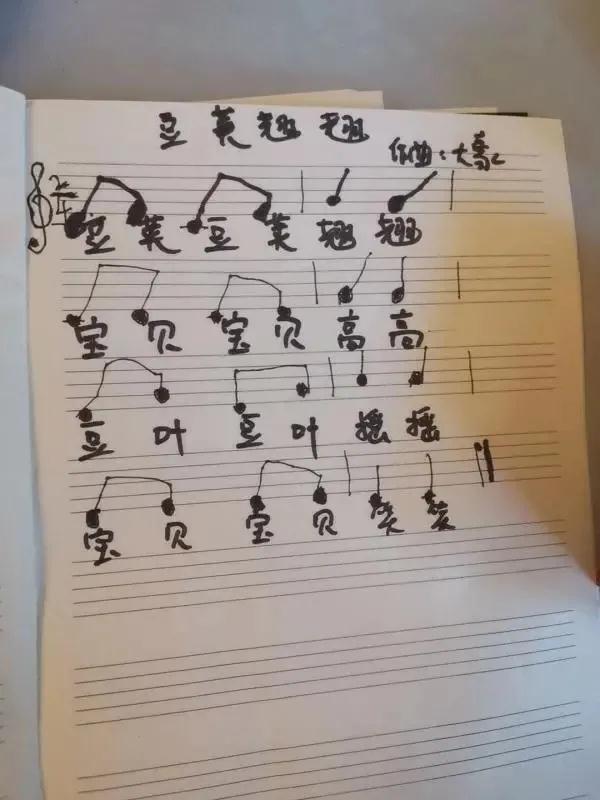 豆荚翘翘
作曲：大
2/4
豆荚豆荚翘翘
宝贝宝贝高高
豆叶豆叶摇摇
宝贝宝贝笑笑